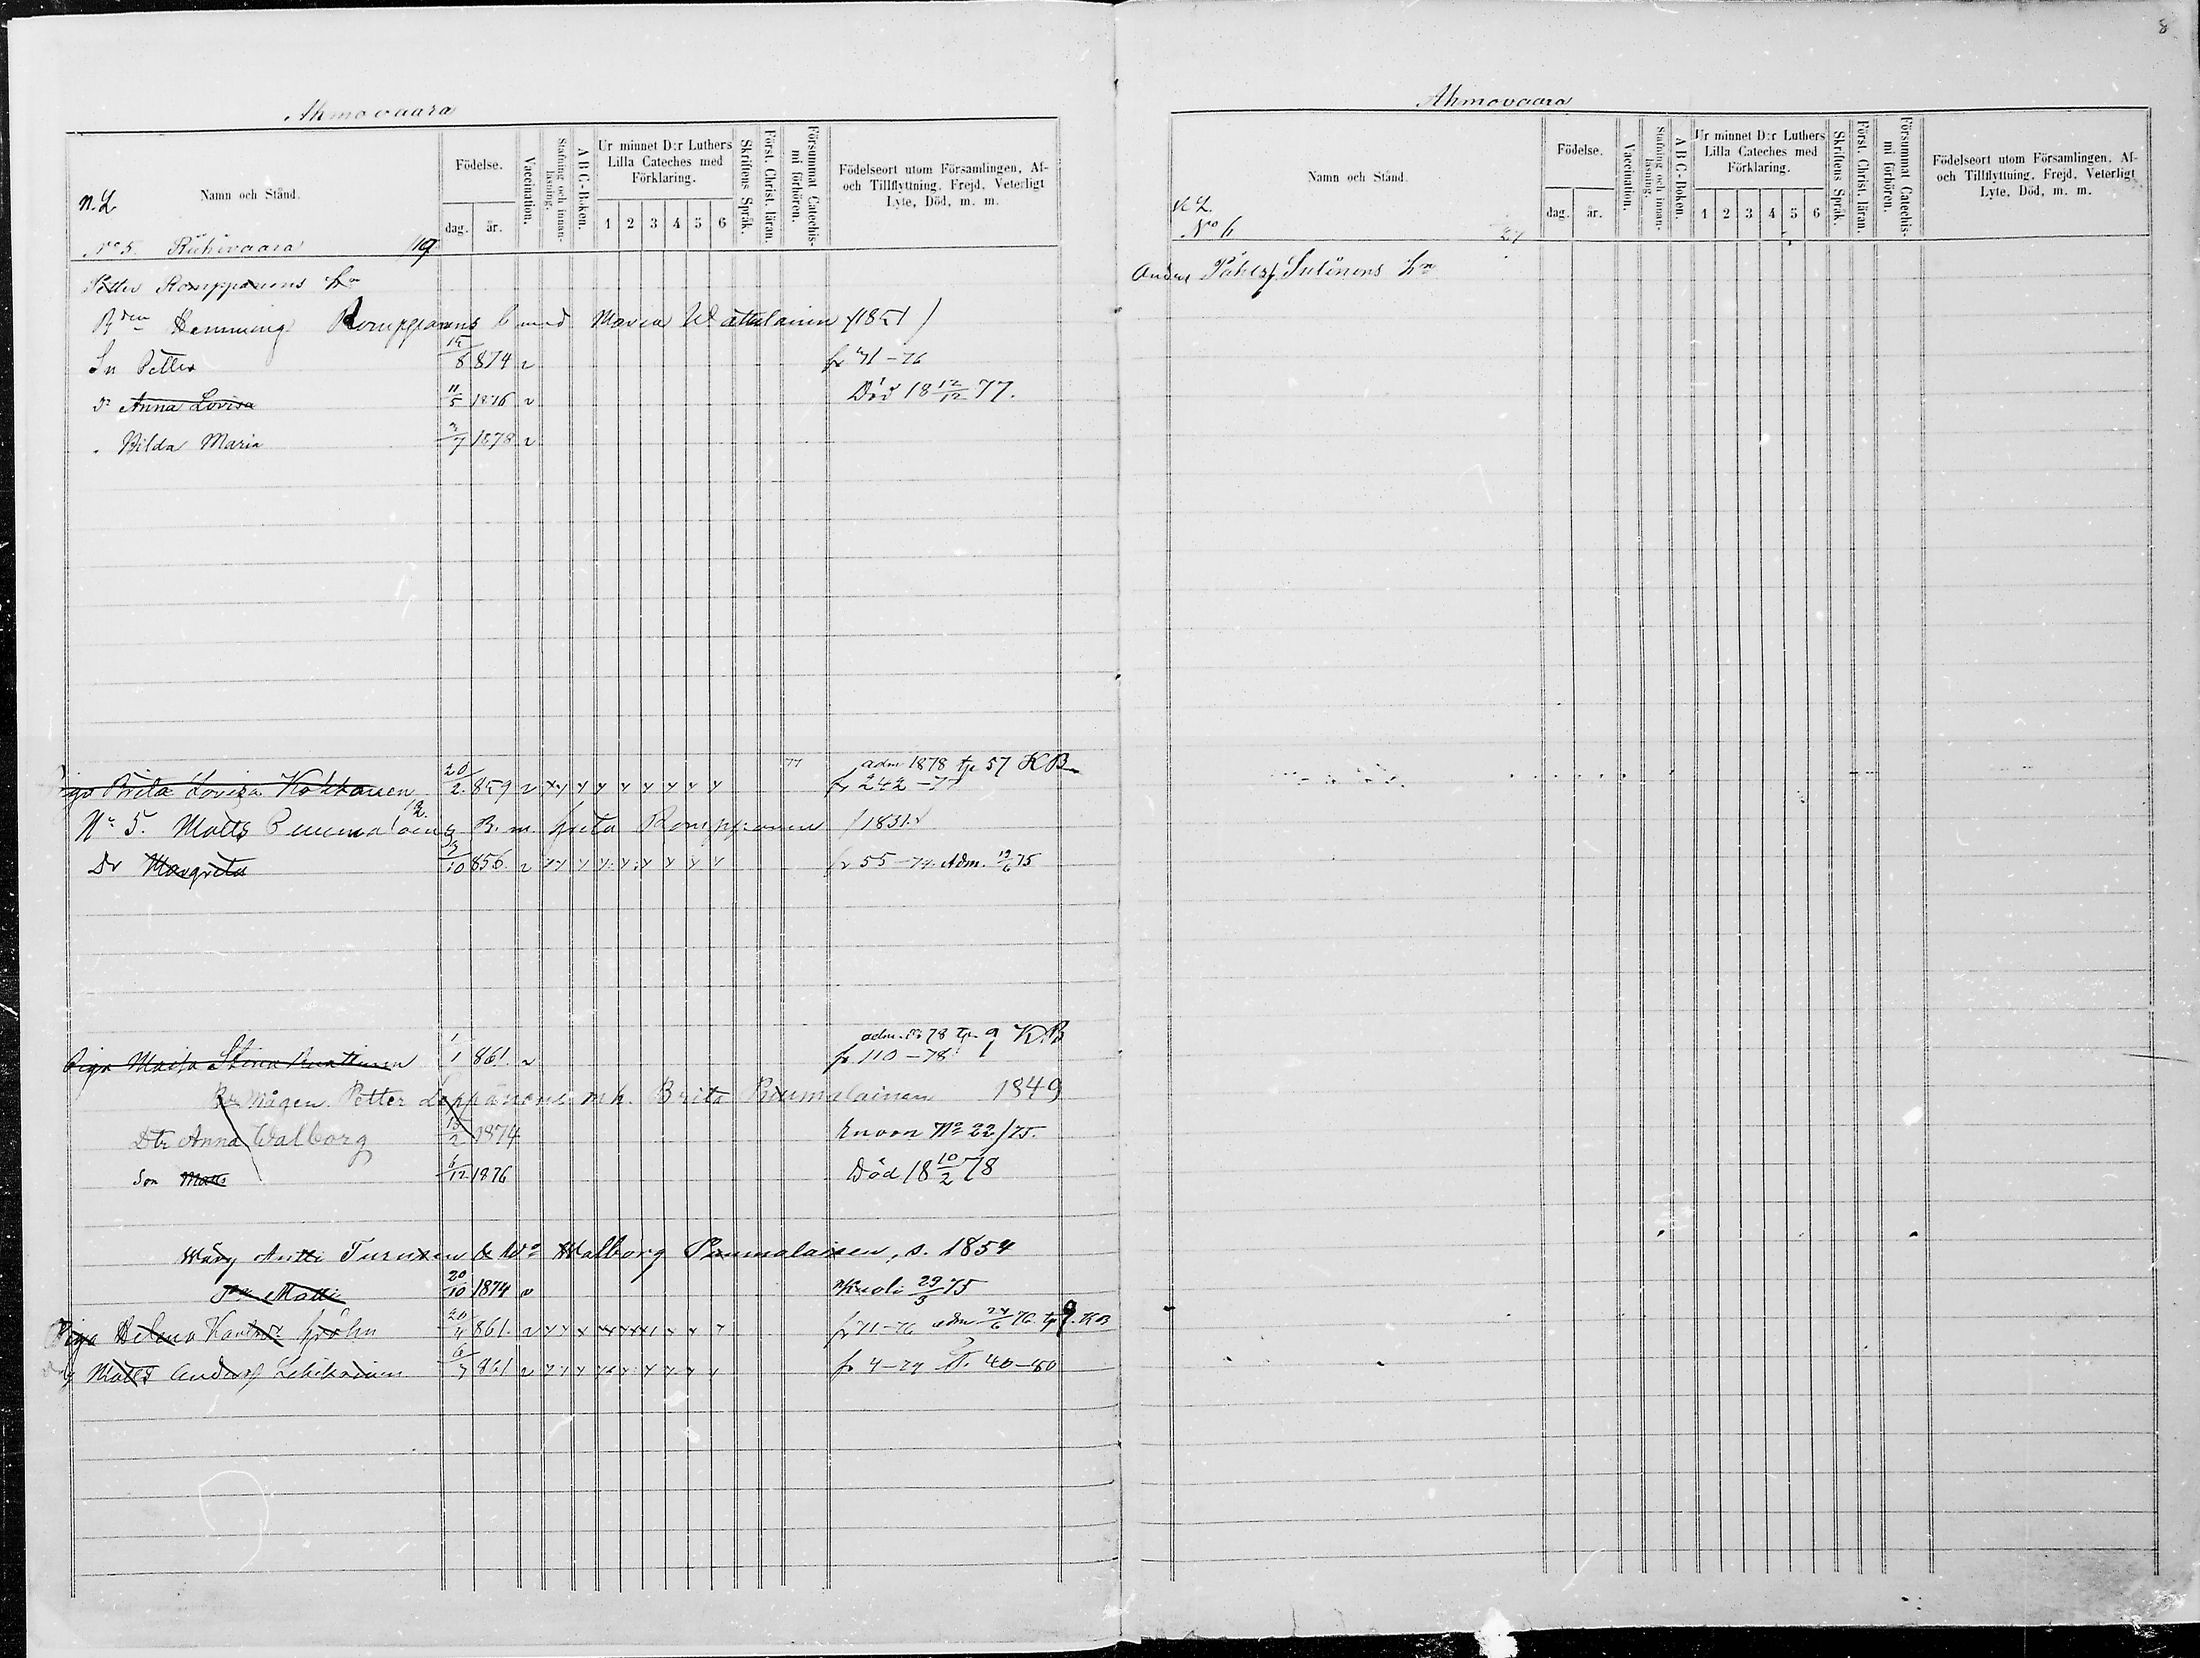 8
Ahmovaara
Namn och Stånd.
Födelse.
dag.
år.
Vaccination.
Stafning och innanläsning.
A B C-Boken.
Ur minnet D:r Luthers Lilla Cateches med Förklaring.
1 2 3 4 5 6
Skriftens Språk.
Först. Christ. läran.
Försummat Catechismi förhören.
Födelseort utom Församlingen, Af- och Tillflyttning, Frejd, Veterligt Lyte, Död, m. m.
N.L.
No 5. Riihivaara 119
Petter Romppanens hn
Bden Hemming Romppanens b med Maria Wattulainen (1851)
Sn Petter 15/8 874 v fr 71-76
Dr Anna Lovisa 11/5 1876 v Död 18 12/12 77.
Hilda Maria 3/7 1878 v
77 adm 1878 tp 57 KB
Piga Brita Lovisa Kokkonen 20/2 859 v fr 242-77
No 5. Matts B.m. Greta Romppanen (1831)
Dr Margreta 3/10 856 v fr 55-74. Adm. 19/6 75
adm. 78 tp. 9 K.B
Piga Maria Stina 1/1 861. v fr 110-78
Mågen Petter Leppänens m.h. Brita Puumalainen 1849
Dtr Anna Walborg 13/2 1874 No 22/75.
Son Matts 1/12 1876 Död 18 10/2 78
Måg Antti Turunen Walborg Puumalainen, s. 1854
Matti 20/10 1874 v Kuoli 29/3 75
Piga Helena 20/4 861. v fr 71-76 adm. 24/6 76. tp 9. KB
Matts Andersf Lehikoinen 6/7 861 v fr 4-74 40-80
Ahmovaara
Namn och Stånd.
Födelse.
dag.
år.
Vaccination.
Stafning och innanläsning.
A B C-Boken.
Ur minnet D:r Luthers Lilla Cateches med Förklaring.
1 2 3 4 5 6
Skriftens Språk.
Först. Christ. läran.
Försummat Catechismi förhören.
Födelseort utom Församlingen, Af- och Tillflyttning, Frejd, Veterligt Lyte, Död, m. m.
N.L.
No 6
Anders Påhlsf. Sutinens hn